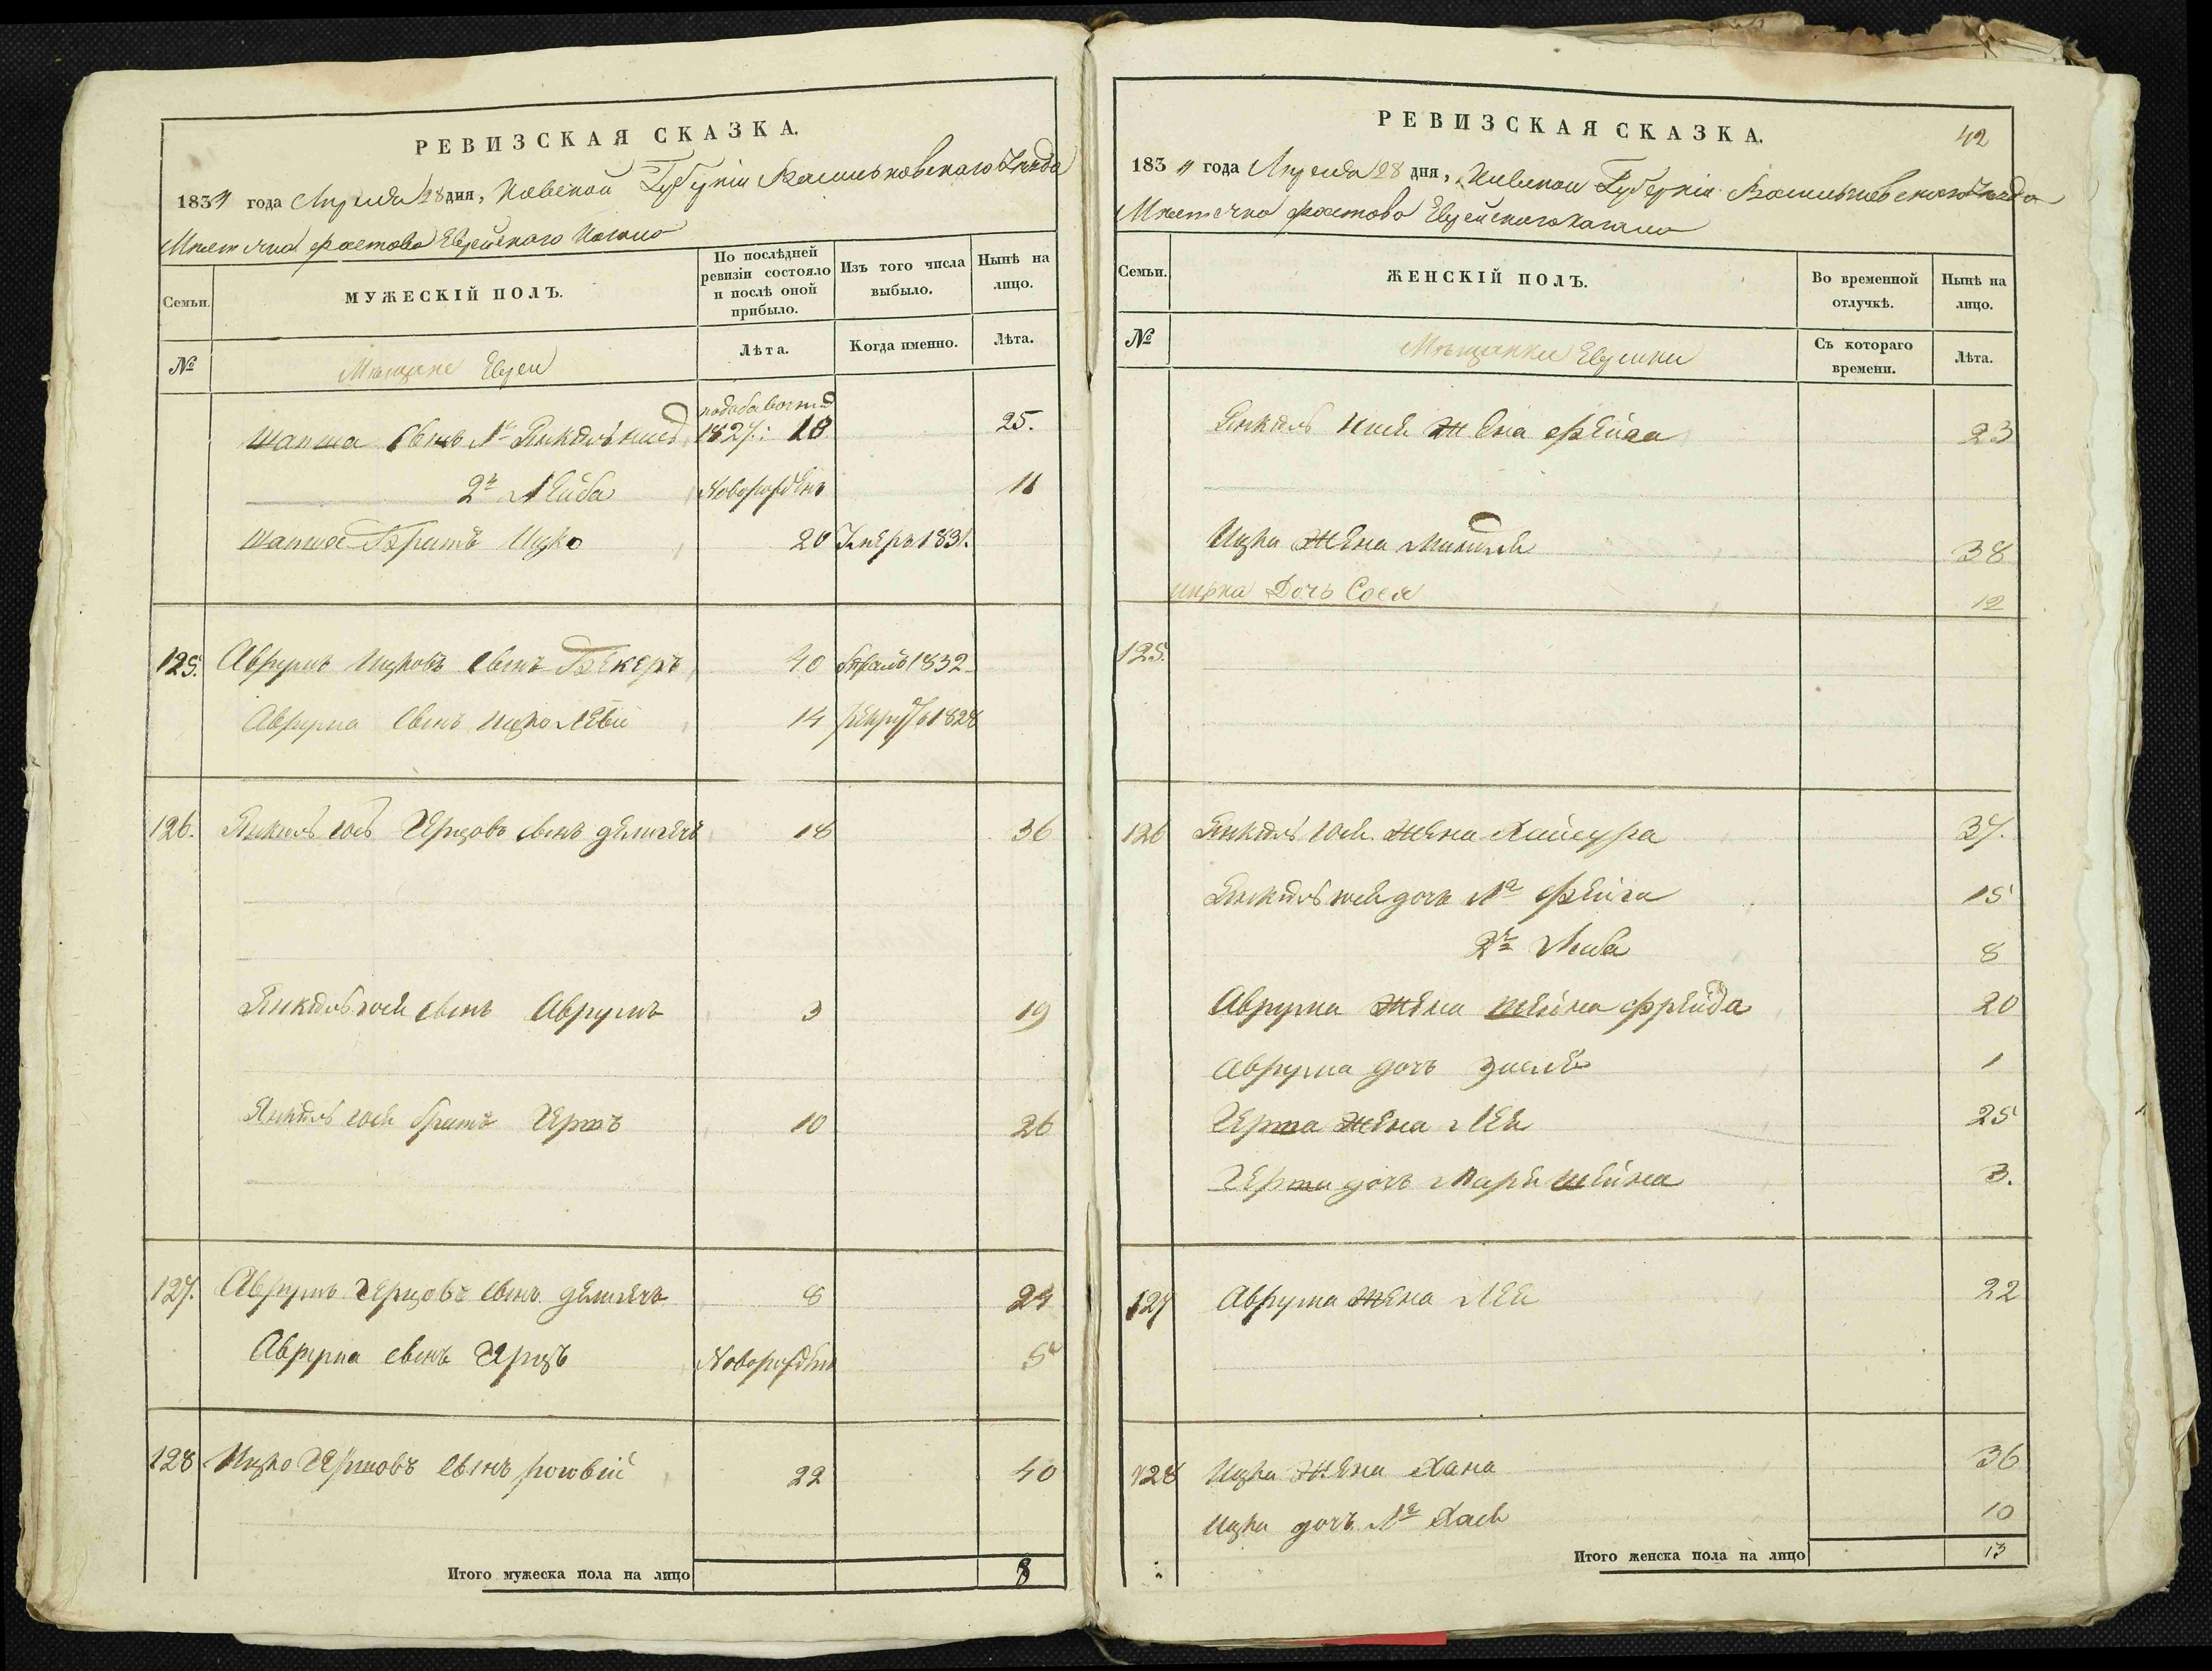 РЕВИЗСКАЯ СКАЗКА.
1834 года Апреля 28 дня, Киевской Губерніи Васильковского Уезда
Местечка фастова Еврейского Кагала
Семьи.
МУЖЕСКІЙ ПОЛЪ.
По послѣдней ревизіи состояло и послѣ оной прибыло.
Изъ того числа выбыло.
Нынѣ на лицо.
№
Мещане Евреи
Лѣта.
Когда именно.
Лѣта.
1827: 18 25.
шапша сынъ 1й Янкель
2й Лейба Новорожденъ 11
шапша Братъ Ицко 20 Умеръ 1831.
125. Аврумъ Ицковъ сынъ Бекеръ 40 1832
Аврума сынъ Ицко Леви 14 1828
126. Янкель Гершовъ сынъ 18 36
Янкель сынъ Аврумъ 3 19
Янкель братъ Гершъ 10 26
127. Аврумъ Герцовъ сынъ 8 24
Аврума сынъ Герцъ Новорожден 5
128 Ицко Гершковъ сынъ 22 40
Итого мужеска пола на лицо 8
РЕВИЗСКАЯ СКАЗКА.
42
1834 года Апреля 28 дня, Киевской Губерніи Васильковского Уезда
Местечка фастова Еврейского Кагала
Семьи.
ЖЕНСКІЙ ПОЛЪ.
Во временной отлучкѣ.
Нынѣ на лицо.
№
Мещанки Еврейки
Съ котораго времени.
Лѣта.
Янкель жена фейга 23
Ицка жена 38
Ицка Дочь Сося 12
125.
126 Янкель жена Хайсура 37.
Янкель дочь 1я фейга 15
2я Либа 8
Аврума жена шейна фрейда 20
Аврума дочь 1
Герша жена Лея 25
Герша дочь Маря шейна 3.
127 Аврума жена Лея 22
128 Ицка жена Хана 36
Ицка дочь 1я Хася 10
Итого женска пола на лицо 13